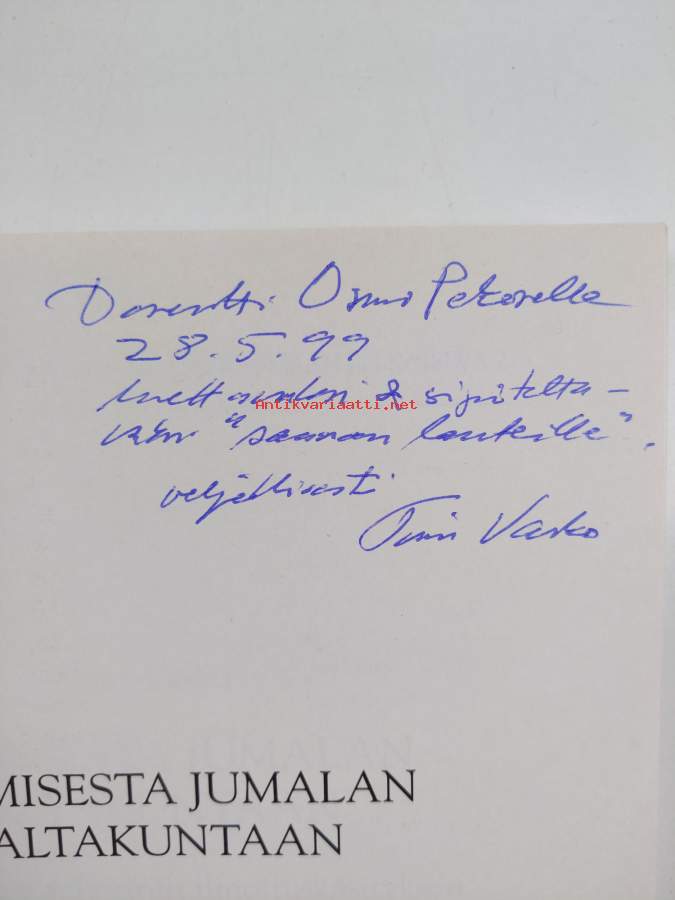 Dosentti Osmo Pekoselle
28.5.99
luettavaksi & siputelta-
vaksi "saunan lauteilla".
veljellisesti
Timi Vasko
Antikvariaatti.net
MISESTA JUMALAN
ALTAKUNTAAN